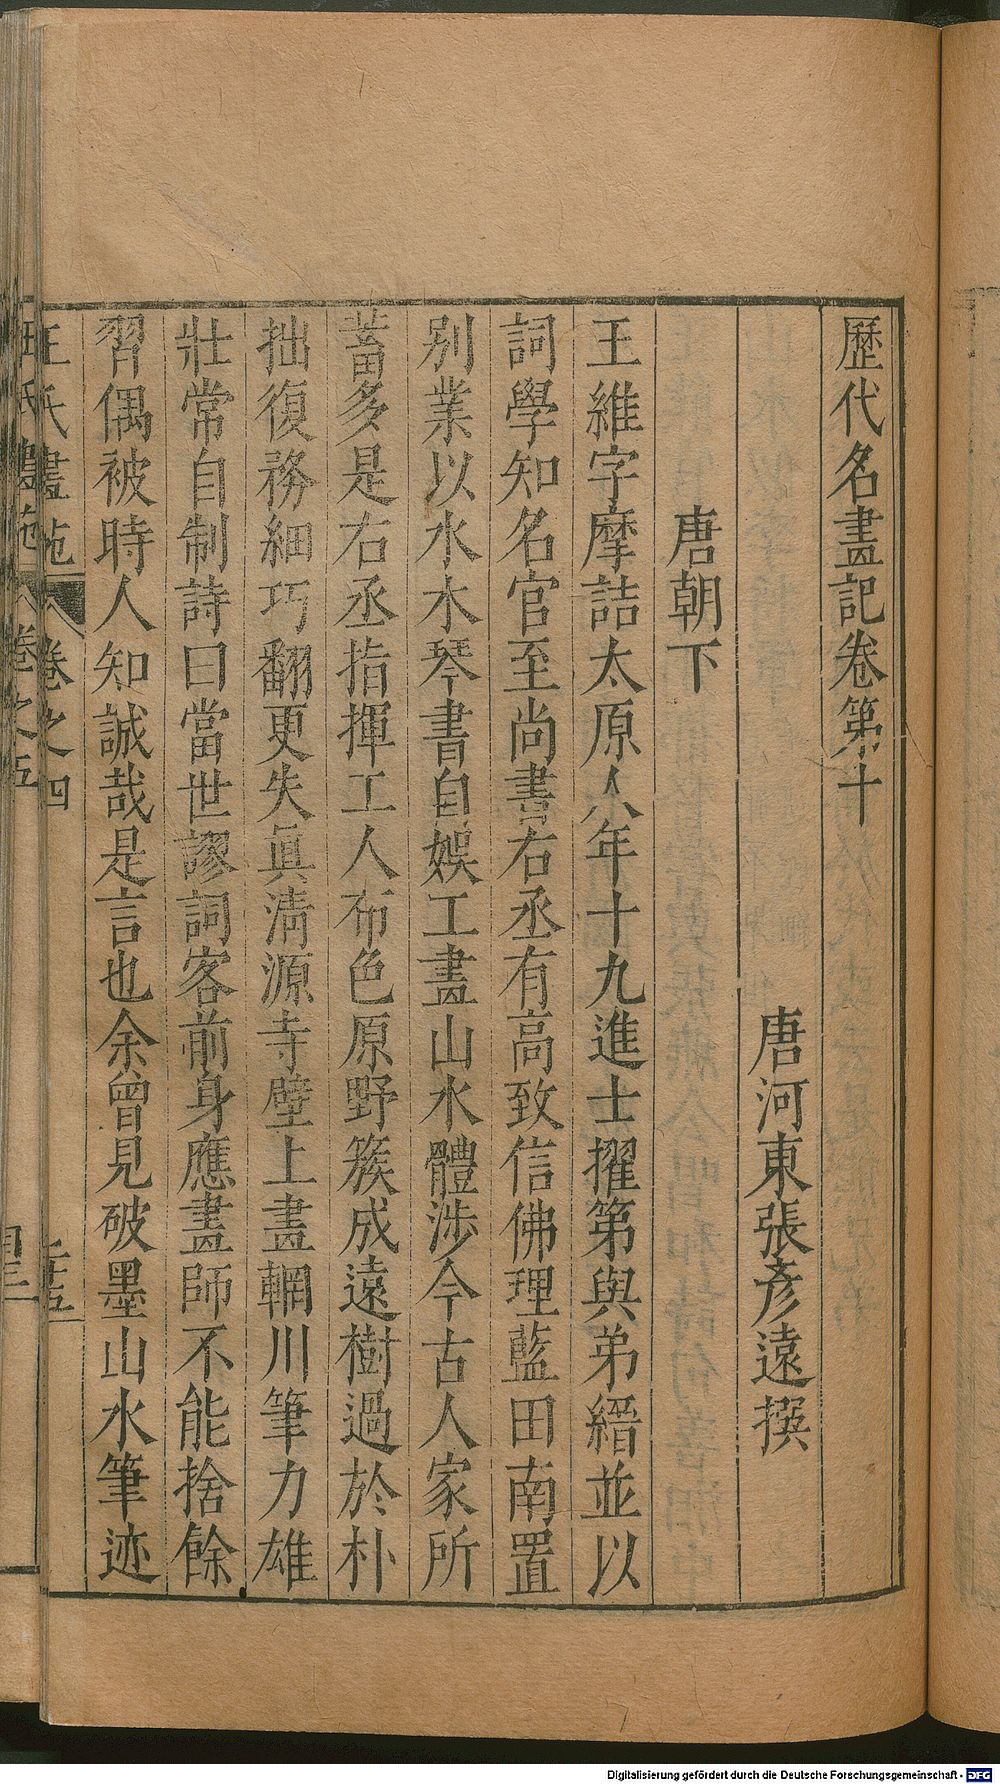 歷代名畫記卷第十
唐河東張彥遠撰
唐朝下
王維字摩詰太原人年十九進士擢第與弟縉並以
詞學知名官至尚書右丞有高致信佛理藍田南置
別業以水木琴書自娛工畫山水體涉今古人家所
蓄多是右丞指揮工人布色原野簇成遠樹過於朴
拙復務細巧翻更失眞清源寺壁上畫輞川筆力雄
壯常自制詩曰當世謬詞客前身應畫師不能捨餘
習偶被時人知誠哉是言也余曾見破墨山水筆迹
王氏畫苑 卷之四
王氏畫苑 卷之五
Digitalisierung gefördert durch die Deutsche Forschungsgemeinschaft - DFG